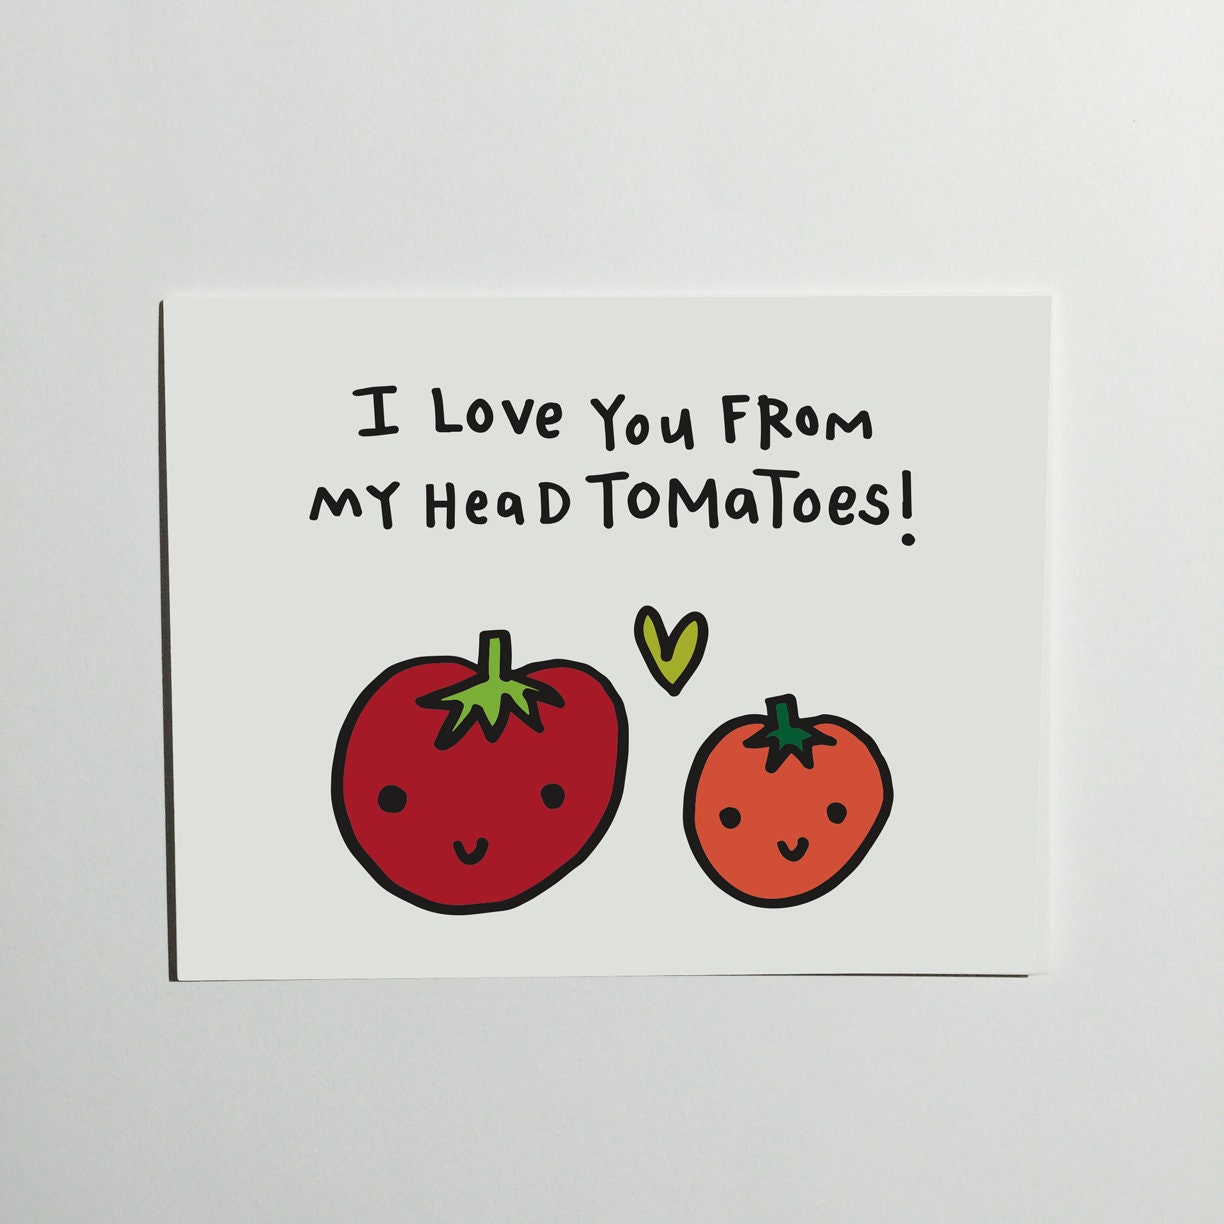 I Love You FRom
my HeaD TomaToes!